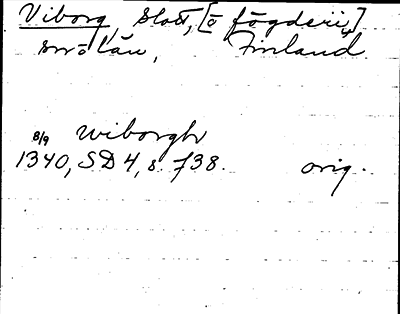 Viborg, slott, [o fögderi,]
smålän, Finland
8/9 wiborgh
1340, SD 4, s. 738. orig.